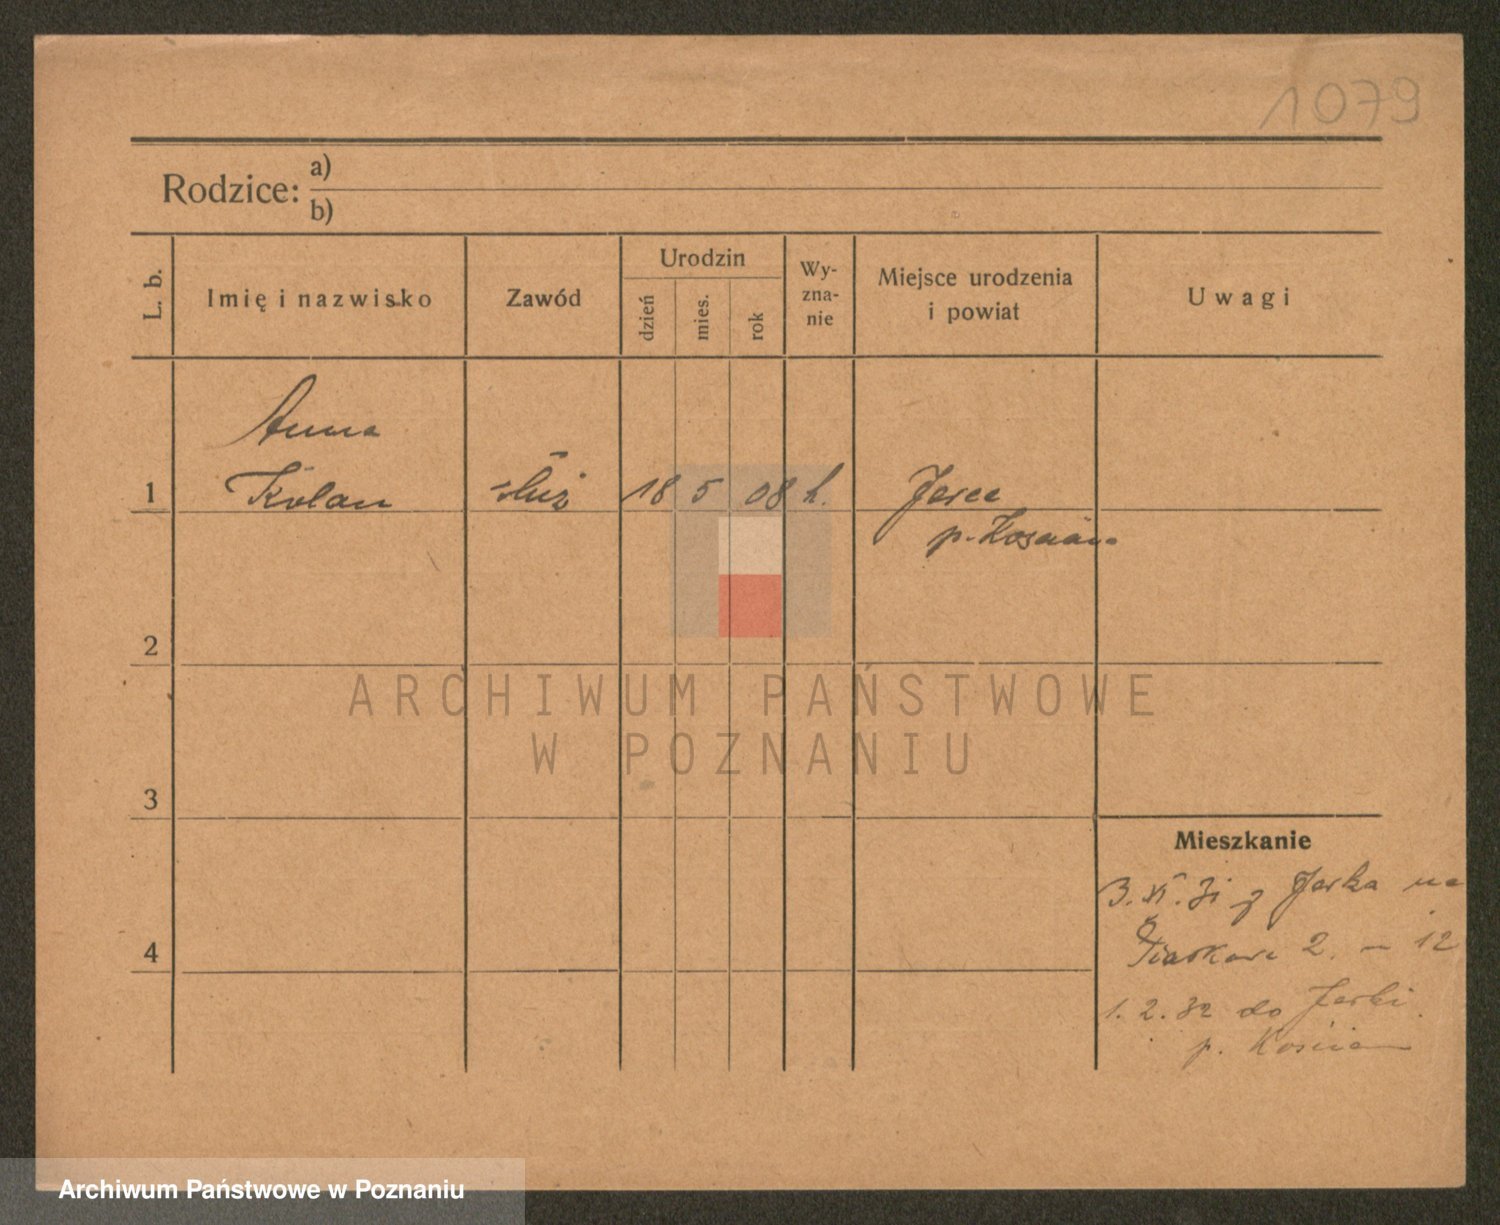 1079
Rodzice: a)
b)
L. b.
Imię i nazwisko
Zawód
Urodzin
dzień
mies.
rok
Wy-
zna-
nie
Miejsce urodzenia
i powiat
Uwagi
Anna
1 Kolan służ 18 5 08 k. Jerce
p. Kościan
2
ARCHIWUM PAŃSTWOWE
W POZNANIU
3
Mieszkanie
3. XI. 31 z Jerka na
2. – 12
4
1. 2. 32 do Jerki
p. Kościan
Archiwum Państwowe w Poznaniu